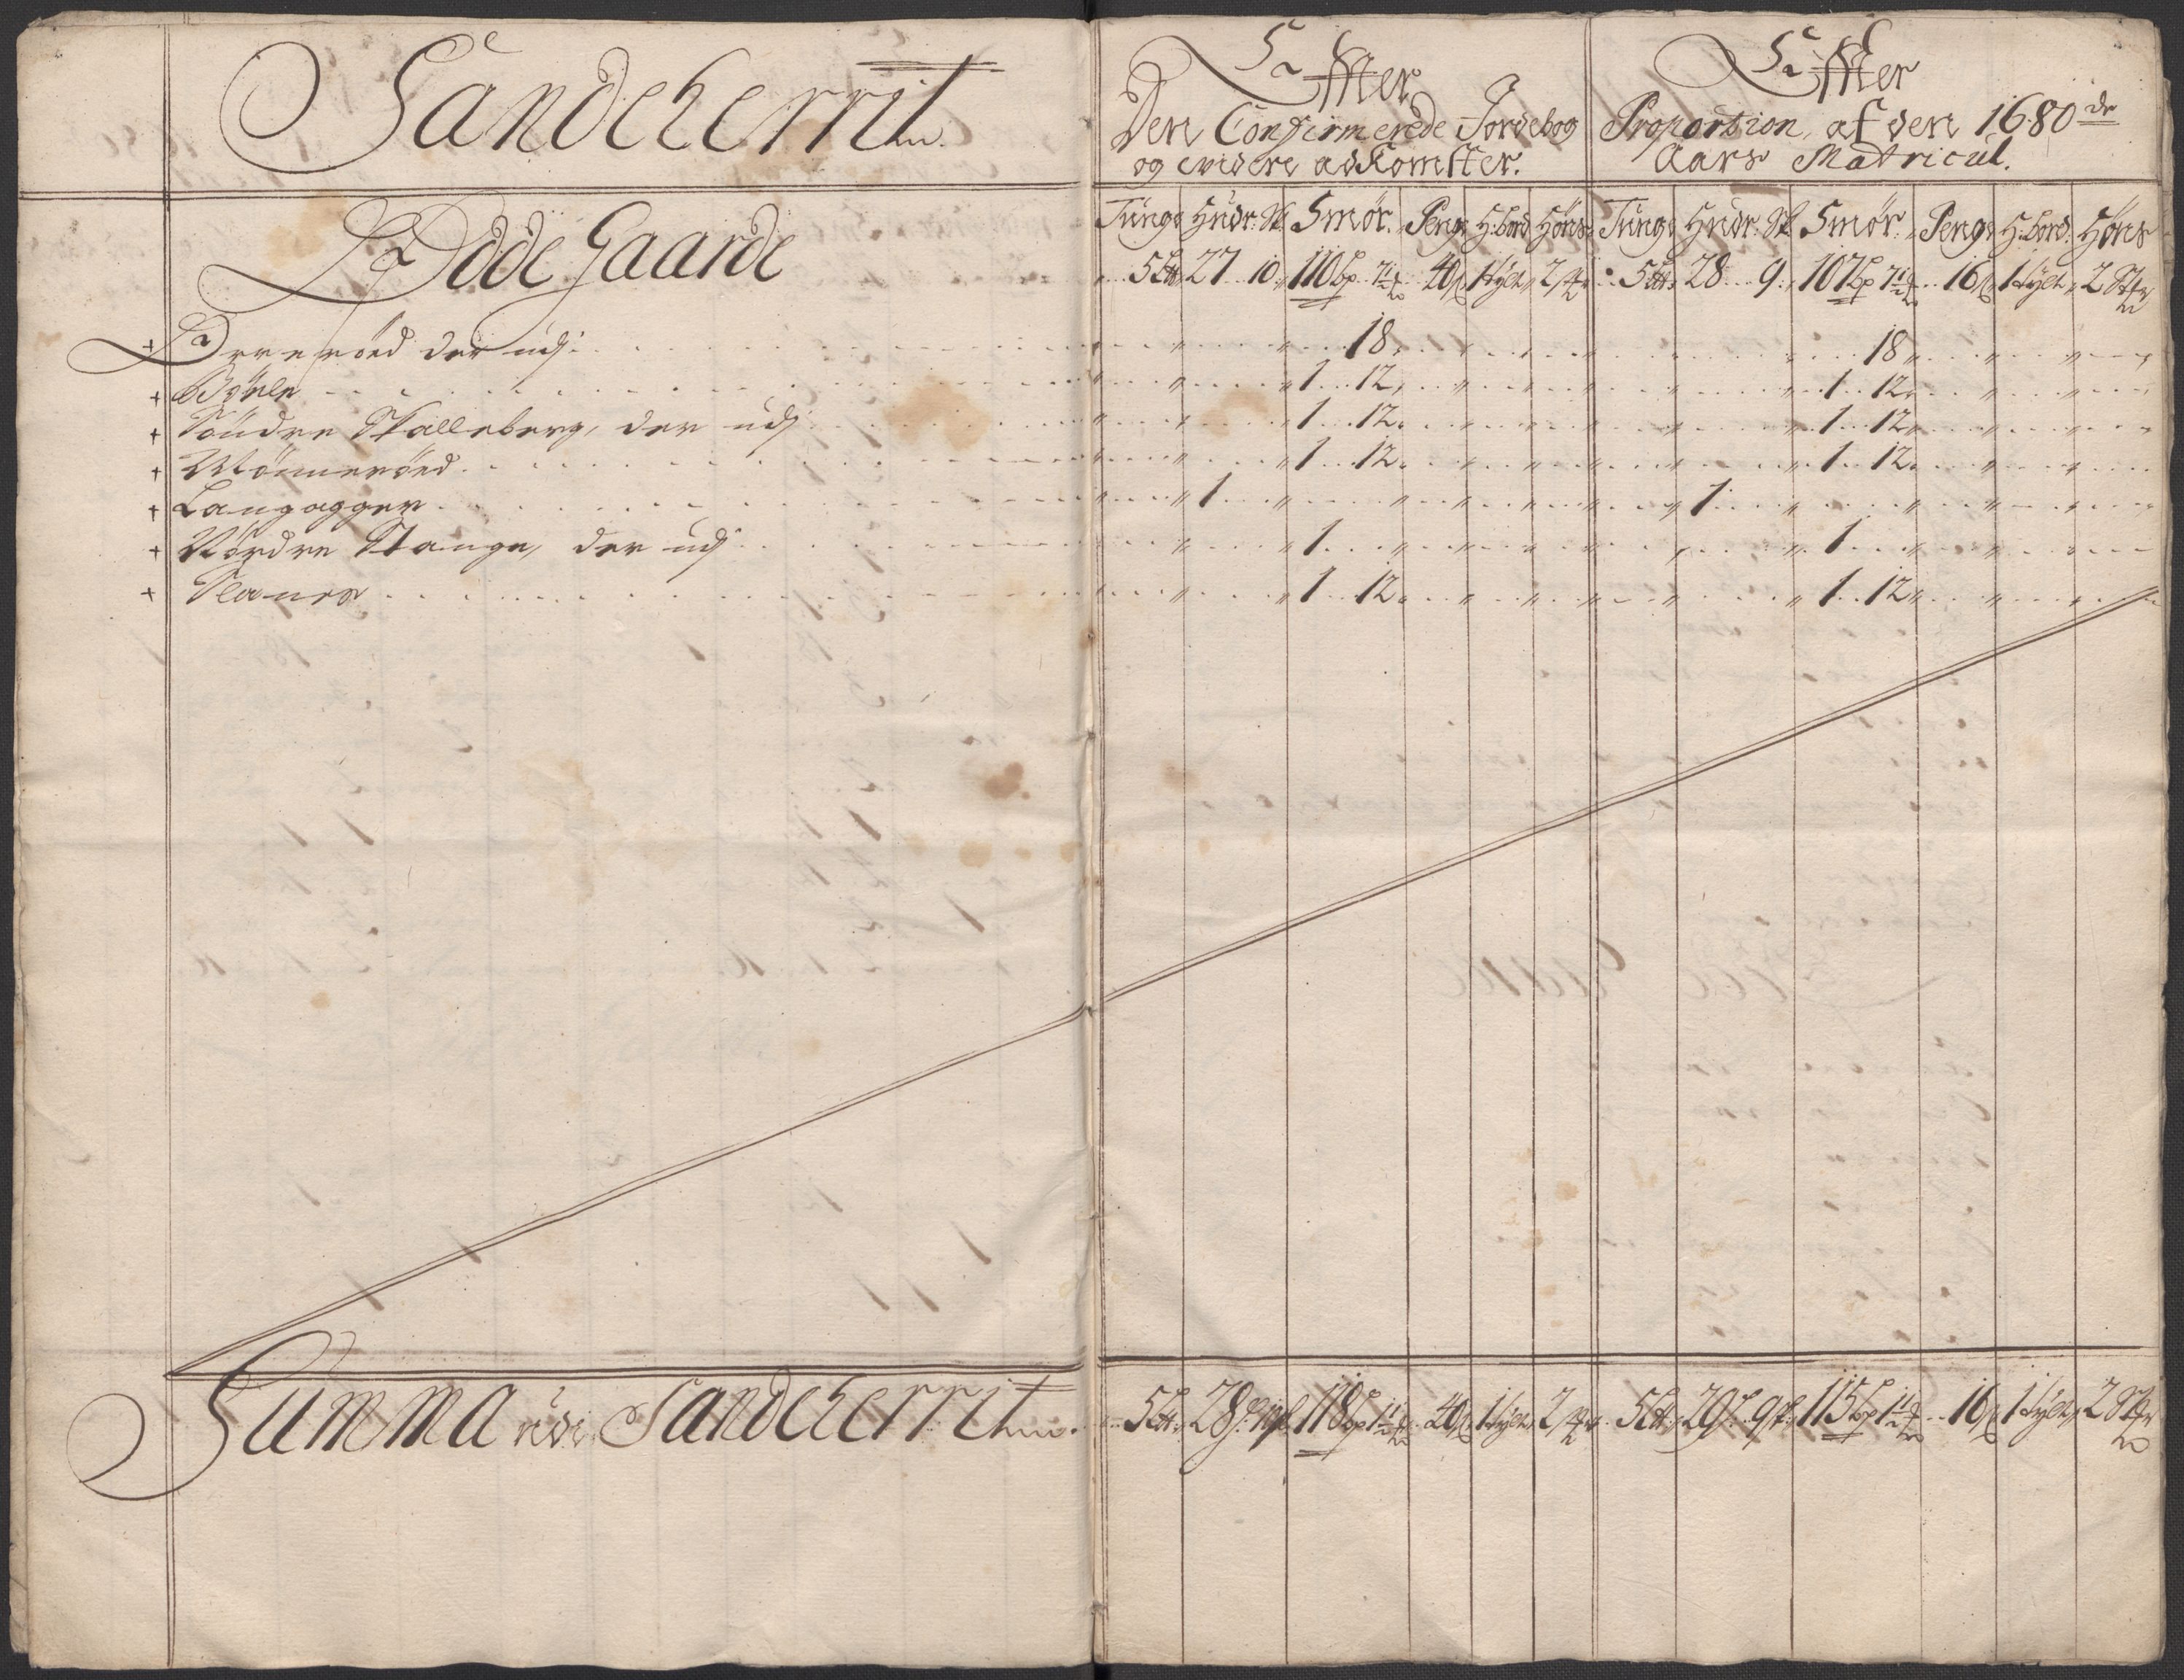 Sandeherrit
Effter
Den Confirmerede Jordebog
og widere adkomster.
Effter
Proportion, af den 1680 de
Aars Matricul.
Tunge Hudr: Sk Smør. Penge H:bord Høns Tunge Hudr: Sk Smør. Penge H:bord: Høns
Ødde Gaarde
5 27 10 110 7½ 40 1 2 5 28 9 107 7½ 16 1 2
+ der udj 18 18
+ 1 12 1 12
+ Søndre Skalleberg, der udj 1 12 1 12
+ 1 12 1 12
+ Langagger 1 1
+ Nordre Stange, der udj 1 1
+ 1 12 1 12
Summa udi Sandeherrit 5 28 118 40 1 2 5 29 9 115 16 1 2